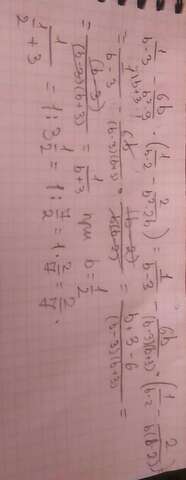 1/(b-3) - 6b/(b²-9) · (1/(b-2) - 2/(b²-2b)) = 1/(b-3) - 6b/((b-3)(b+3)) · (1/(b-2) - 2/(b(b-2)))
= 1/(b-3) - 6b/((b-3)(b+3)) · (b-2)/(b(b-2)) = (b+3-6)/((b-3)(b+3)) =
= (b-3)/((b-3)(b+3)) = 1/(b+3) при b = 1/2
1/(1/2+3) = 1:3 1/2 = 1: 7/2 = 1·2/7 = 2/7.